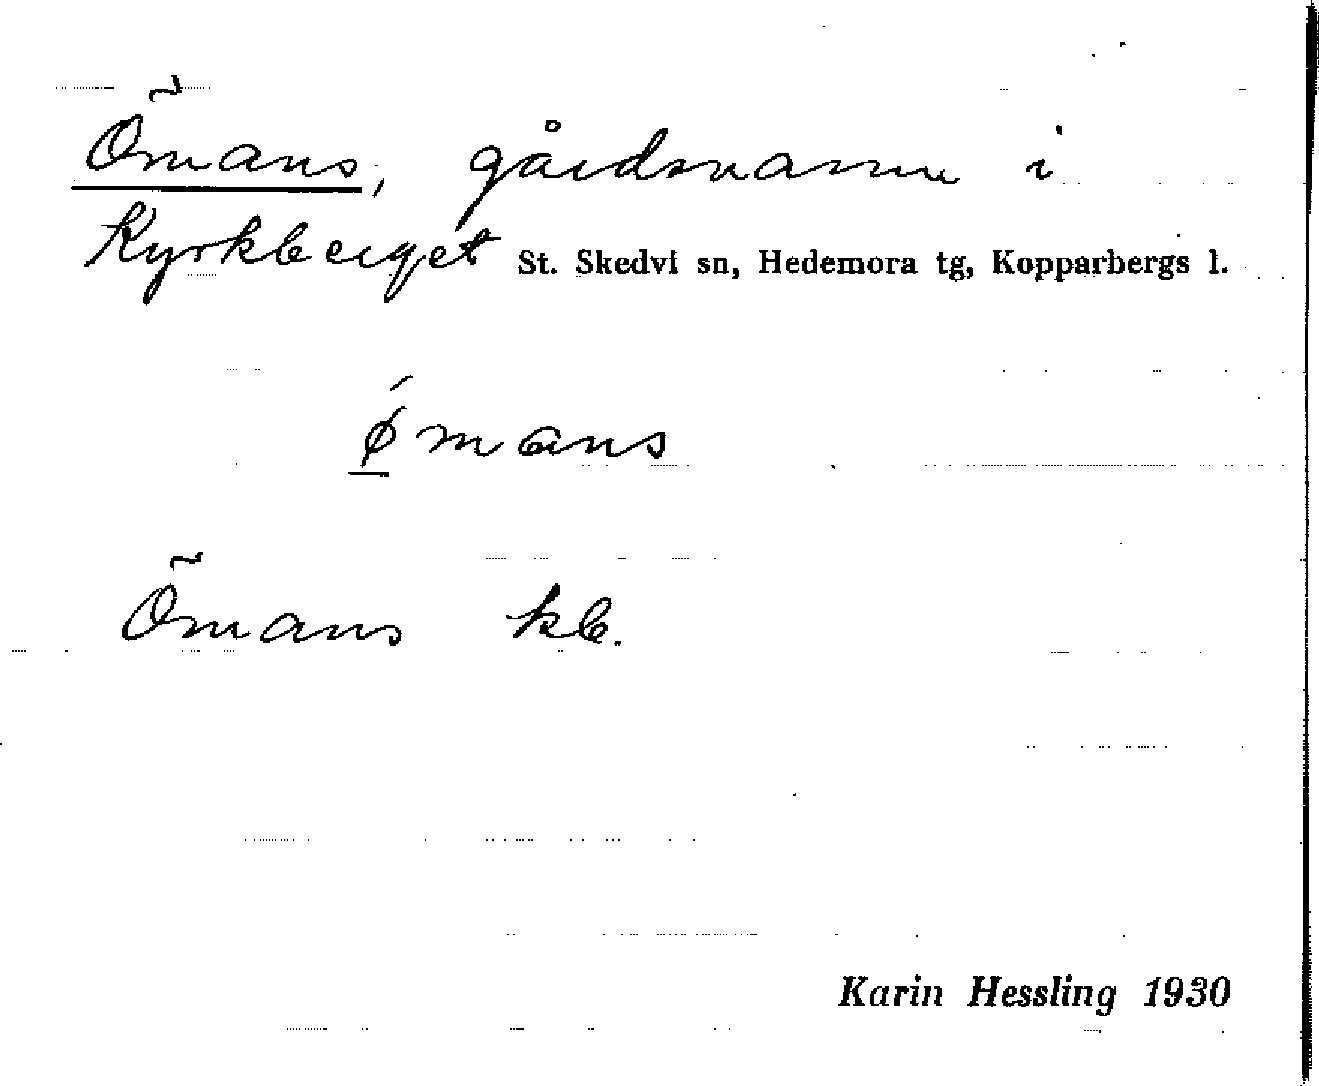 Ömans, gårdsnamn i
Kyrkberget St. Skedvi sn, Hedemora tg, Kopparbergs l.
ǿmans
Ömans kb.
Karin Hessling 1930